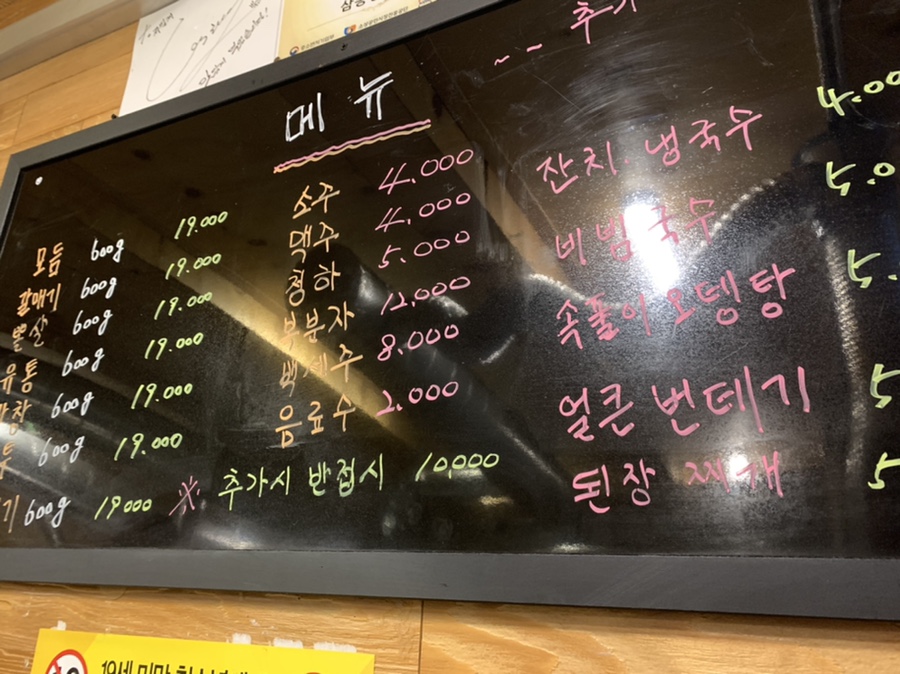 추가
메뉴
모둠 600g 19.000
갈매기 600g 19.000
뽈살 600g 19.000
유통 600g 19.000
막창 600g 19.000
600g 19.000
기 600g 19000
소주 4.000
맥주 4.000
청하 5.000
복분자 12.000
백세주 8.000
음료수 2.000
※ 추가시 반접시 10,000
잔치. 냉국수 4.00
비빔국수 5.0
속풀이 오뎅탕 5.
얼큰 번데기 5
된장 찌개 5